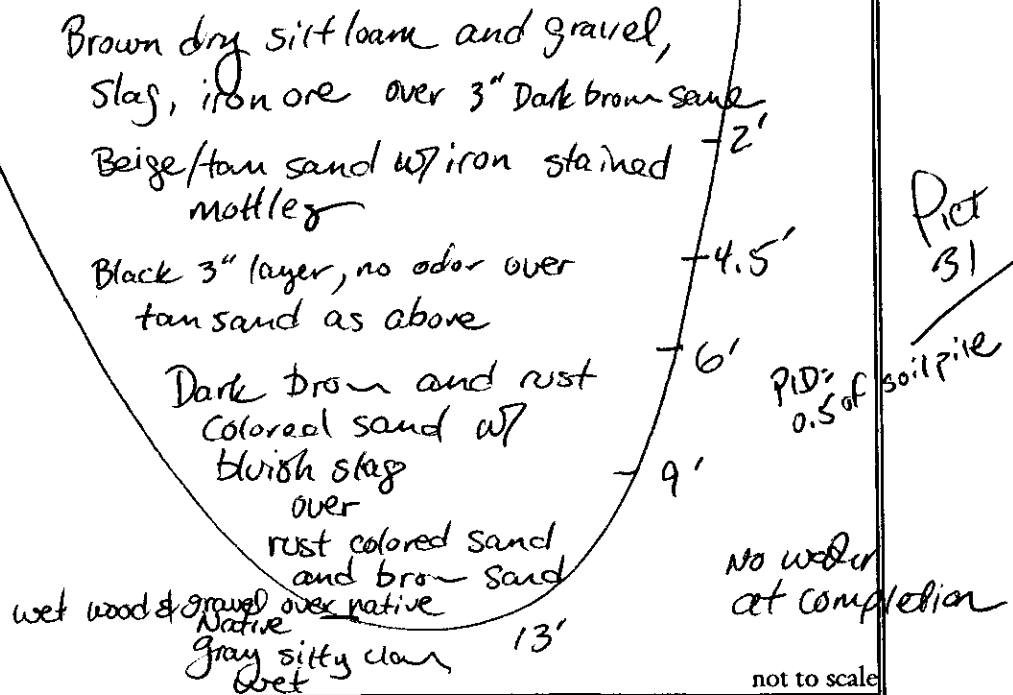 Brown dry silt loam and gravel,
Slag, iron ore over 3" Dark brown sand
2'
Beige/tan sand w/ iron stained
mottles
4.5'
Black 3" layer, no odor over
tan sand as above
6'
Pict
31
PID:
0.5 of soil pile
Dark brown and rust
colored sand w/
bluish slag
over
9'
rust colored sand
and brown sand
wet wood & gravel over native
Native
gray silty clay
wet
13'
No water
at completion
not to scale